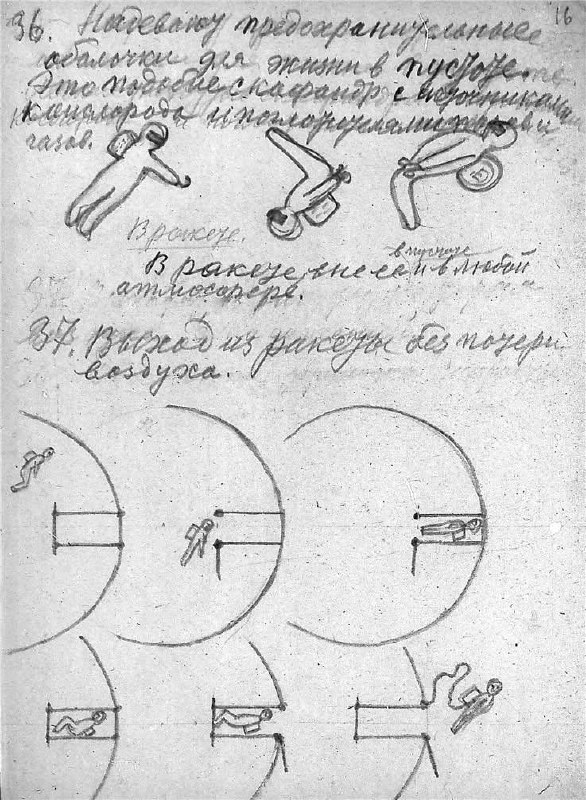 16
36. Надеваю предохранительные
оболочки для жизни в пустоте.
Это подобие скафандр с источниками
кислорода и поглотителями паров и
газов.
В ракете.
в пустоте
В ракете, вне её и в любой
атмосфере.
37. Выход из ракеты без потери
воздуха.